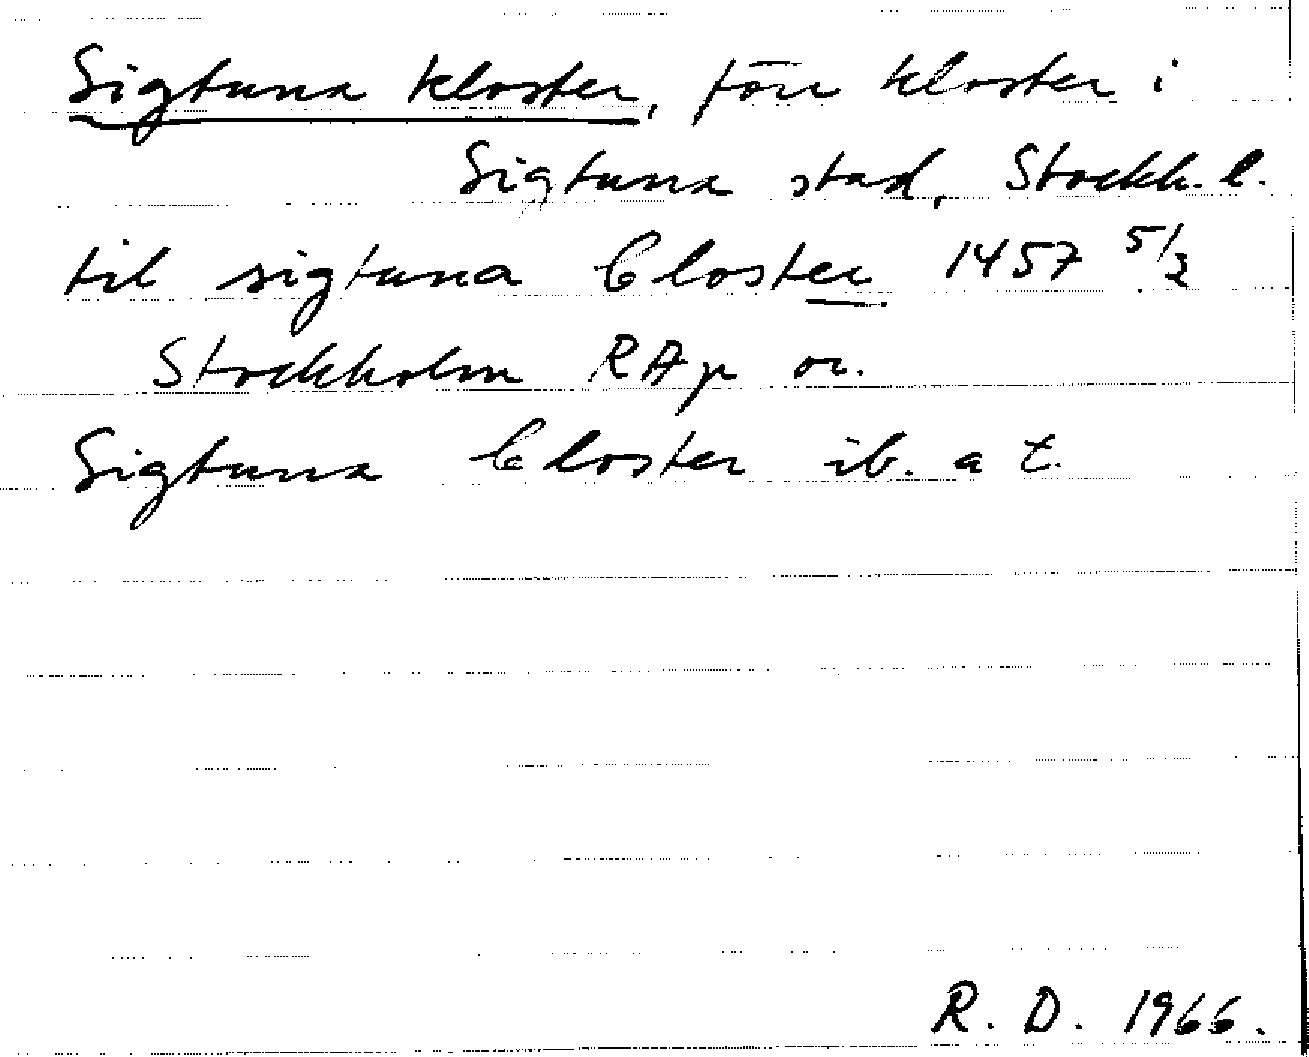 Sigtuna kloster, förr kloster i
Sigtuna stad, Stockh. l.
til sigtuna Closter 1457 5/2
Stockholm RAp or.
Sigtuna Closter ib. a t.
R. D. 1966.